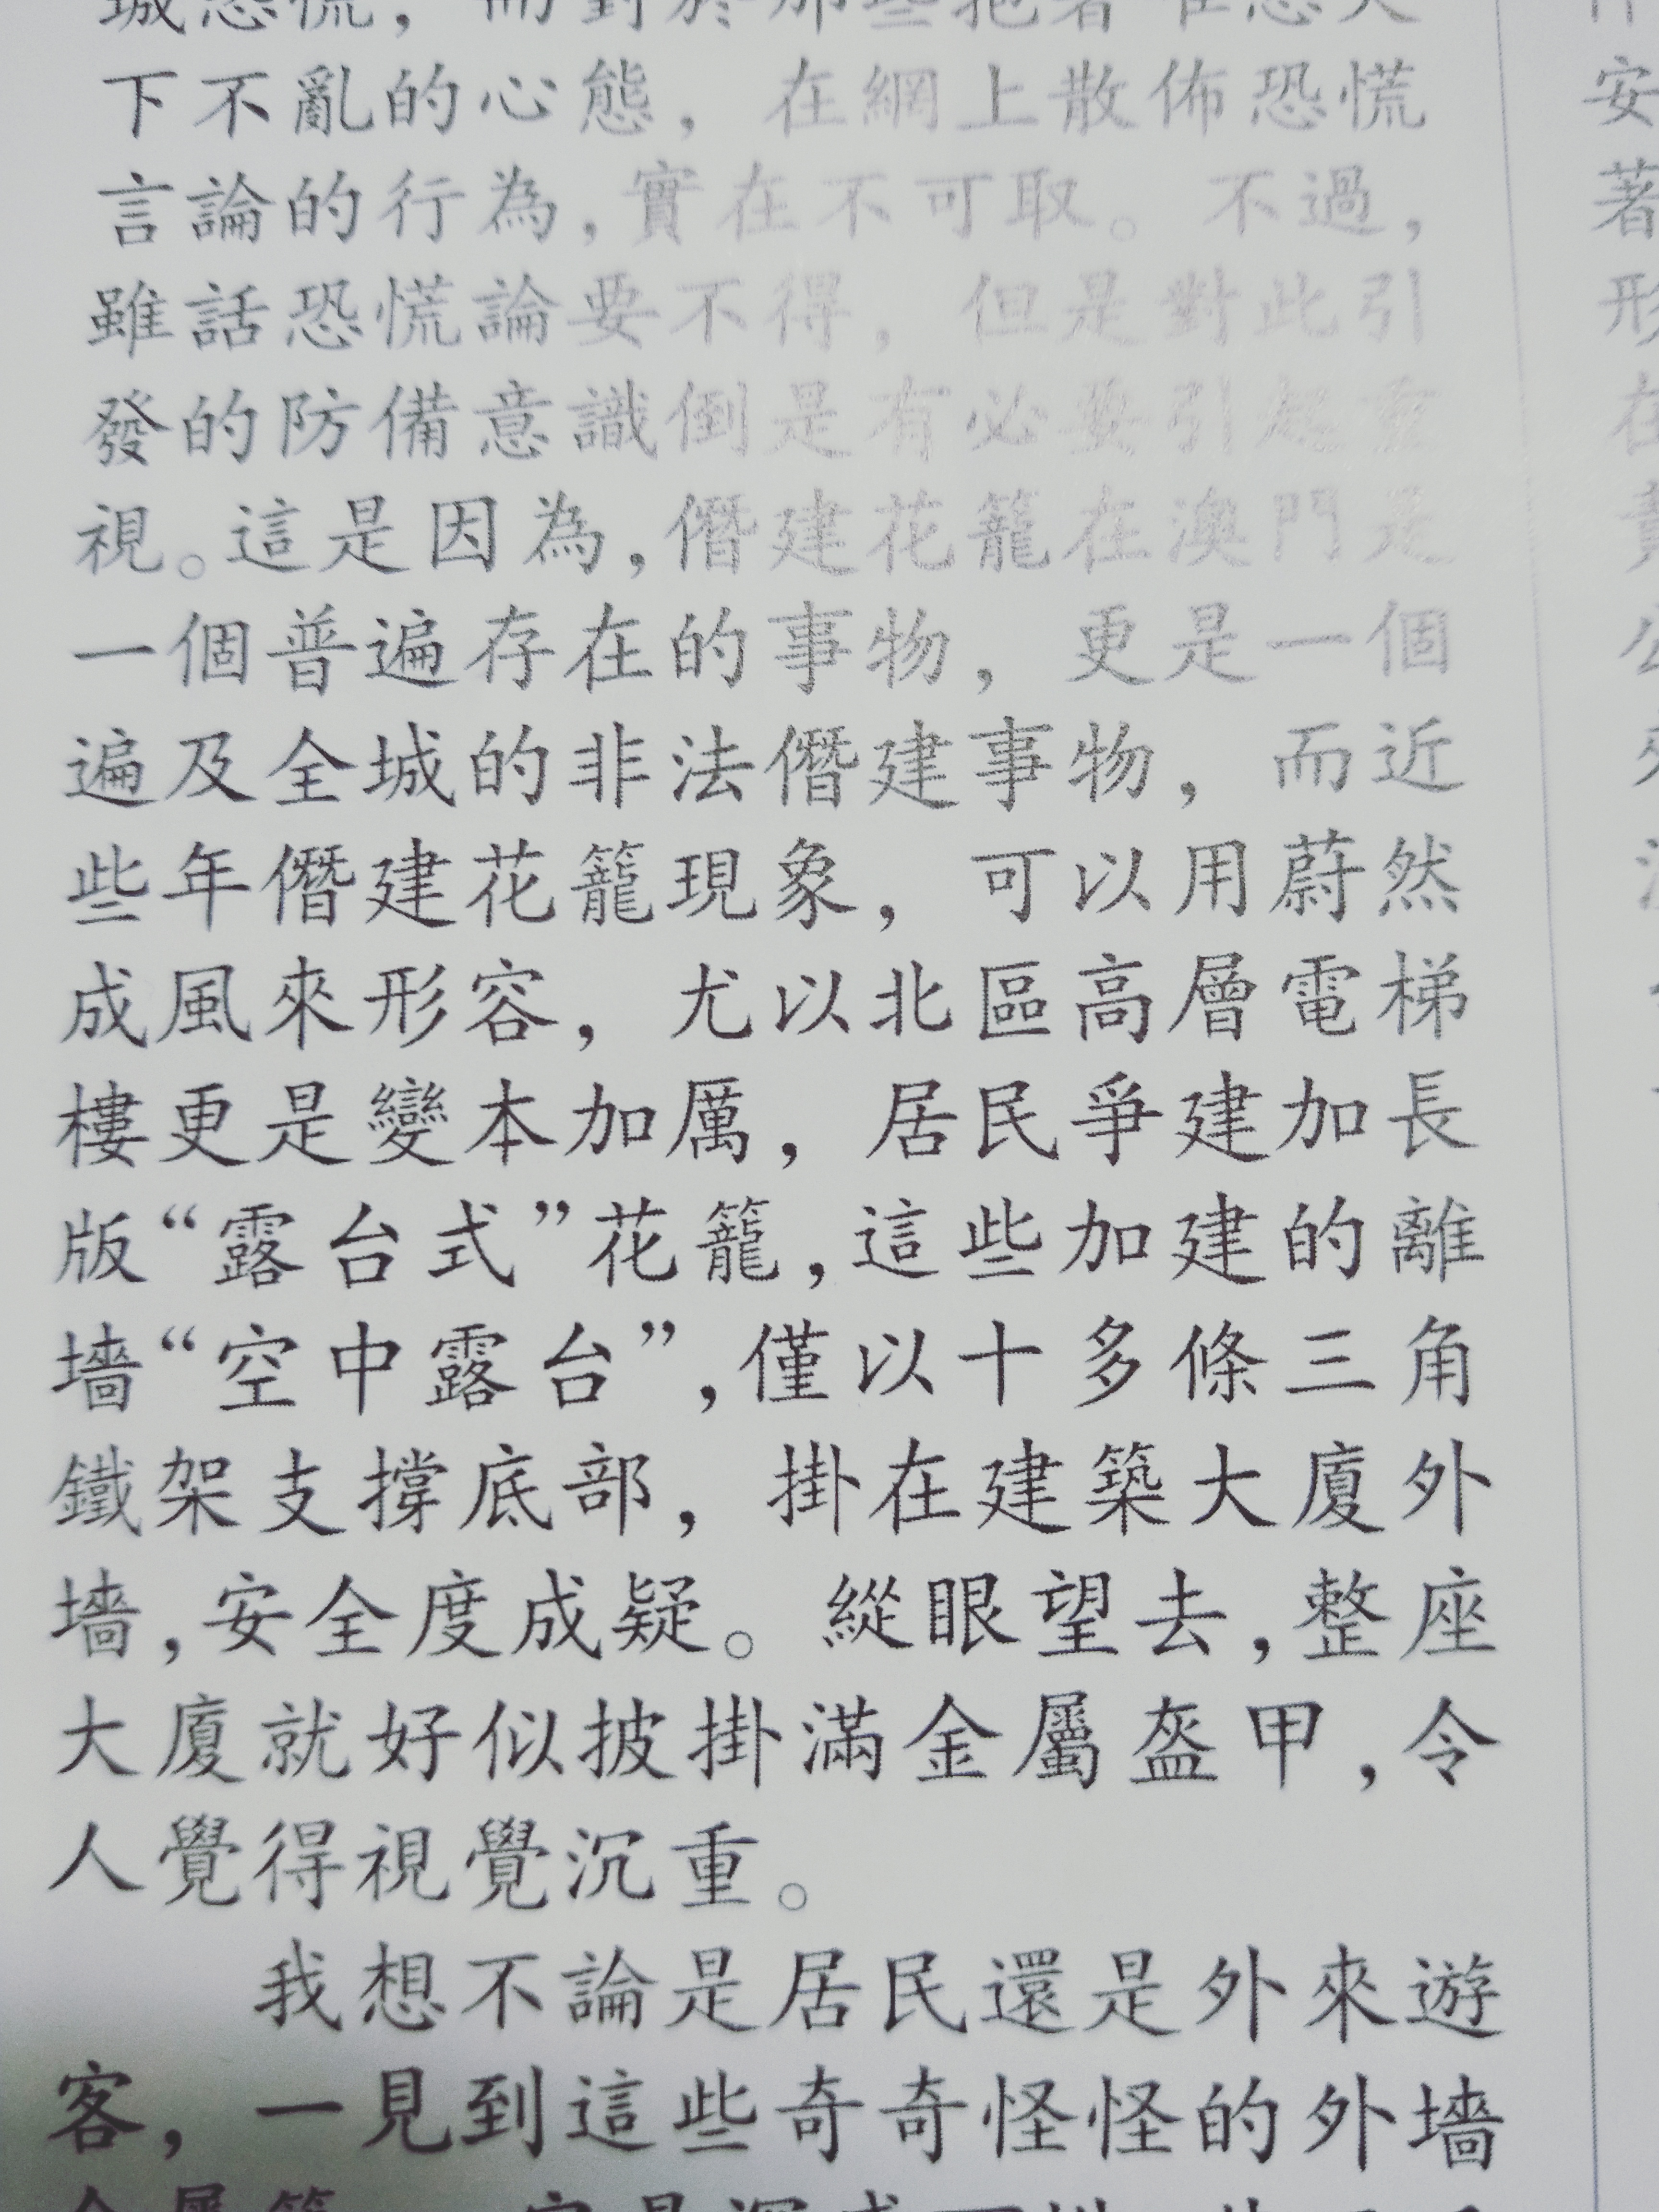 城恐慌，而對於那些抱着唯恐天
下不亂的心態，在網上散佈恐慌
言論的行為，實在不可取。不過，
雖話恐慌論要不得，但是對此引
發的防備意識倒是有必要引起重
視。這是因為，僭建花籠在澳門是
一個普遍存在的事物，更是一個
遍及全城的非法僭建事物，而近
些年僭建花籠現象，可以用蔚然
成風來形容，尤以北區高層電梯
樓更是變本加厲，居民爭建加長
版“露台式”花籠，這些加建的離
墻“空中露台”，僅以十多條三角
鐵架支撐底部，掛在建築大廈外
墻，安全度成疑。縱眼望去，整座
大廈就好似披掛滿金屬盔甲，令
人覺得視覺沉重。
我想不論是居民還是外來遊
客，一見到這些奇奇怪怪的外墻
安
著
形
在
責
公